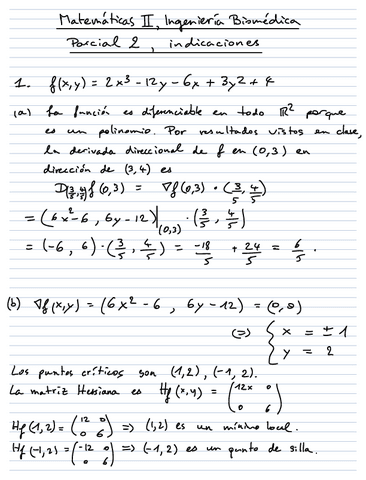 Matemáticas II, Ingeniería Biomédica
Parcial 2, indicaciones
1. f(x,y) = 2x³ - 12y - 6x + 3y2 + 4
(a) La función es diferenciable en todo ℝ² porque
es un polinomio. Por resultados vistos en clase,
la derivada direccional de f en (0,3) en
dirección de (3,4) es
D_(3/5,4/5) f(0,3) = ∇f(0,3) · (3/5, 4/5)
= (6x²-6, 6y-12)|_(0,3) · (3/5, 4/5)
= (-6, 6) · (3/5, 4/5) = -18/5 + 24/5 = 6/5.
(b) ∇f(x,y) = (6x²-6, 6y-12) = (0,0)
(=) { x = ±1
y = 2
Los puntos críticos son (1,2), (-1,2).
La matriz Hessiana es Hf(x,y) = (12x 0
0 6)
Hf(1,2) = (12 0
0 6) => (1,2) es un mínimo local.
Hf(-1,2) = (-12 0
0 6) => (-1,2) es un punto de silla.